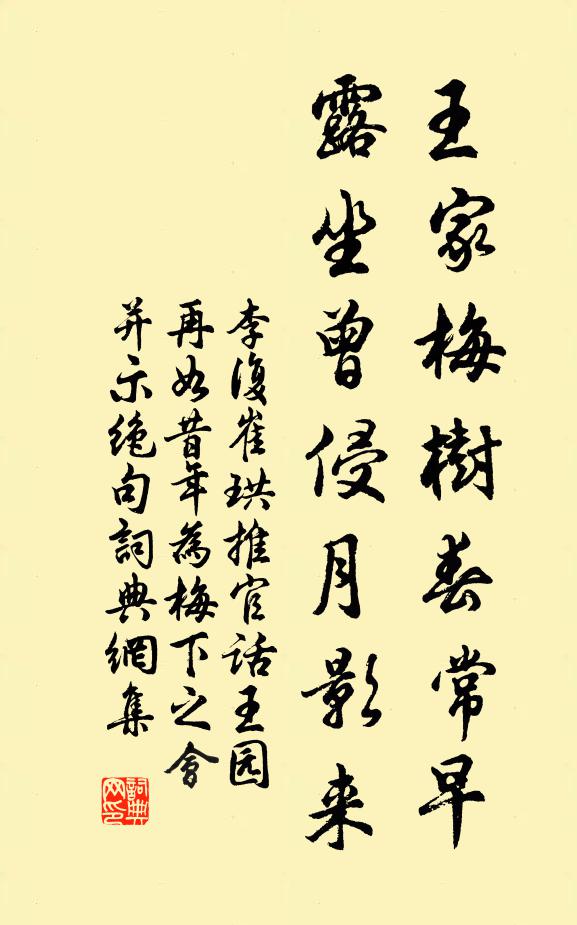 王家梅樹春常早
露坐曾侵月影来
李復崔珙推官話王园
再如昔年為梅下之會
并示絶句詞典網集
詞典网印